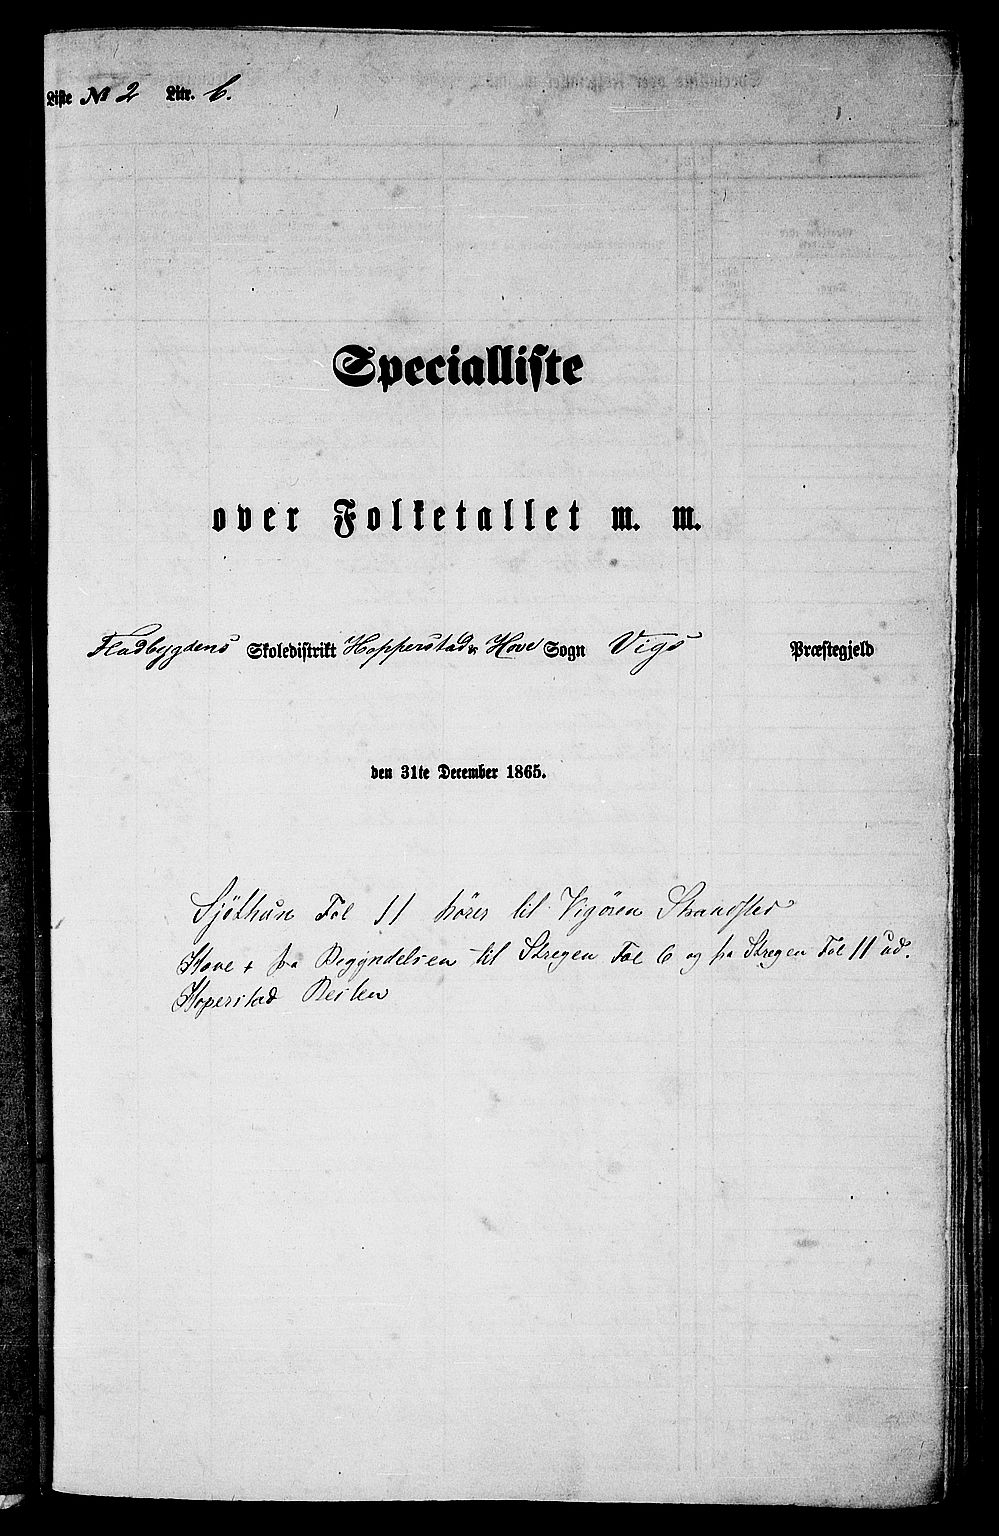 Liste No 2 Litr. b.
Specialliste
over Folketallet m. m.
Fladbygdens Skoledistrikt Hopperstad & Hove Sogn Vigs Præstegjeld
den 31te December 1865.
Sjöthun Fol 11 hører til Vigören Strandsted
Hove + fra Begyndelsen til Stregen Fol 6 og fra Stregen Fol 11 ud.
Hoperstad Resten